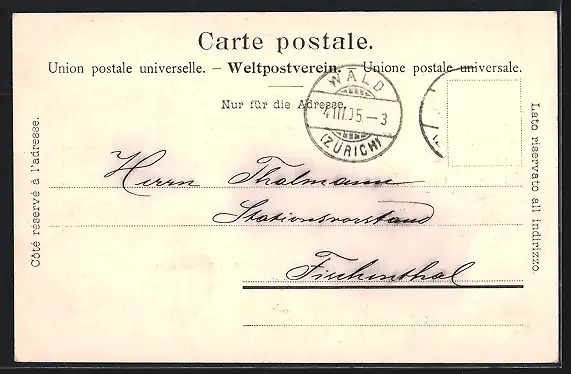 Carte postale.
Union postale universelle. – Weltpostverein. – Unione postale universale.
Nur für die Adresse.
WALD
4 III.05.–3
(ZÜRICH)
Côté réservé à l'adresse.
Lato riservato all indirizzo.
Herrn Thalmann
Stationsvorstand
Fischenthal